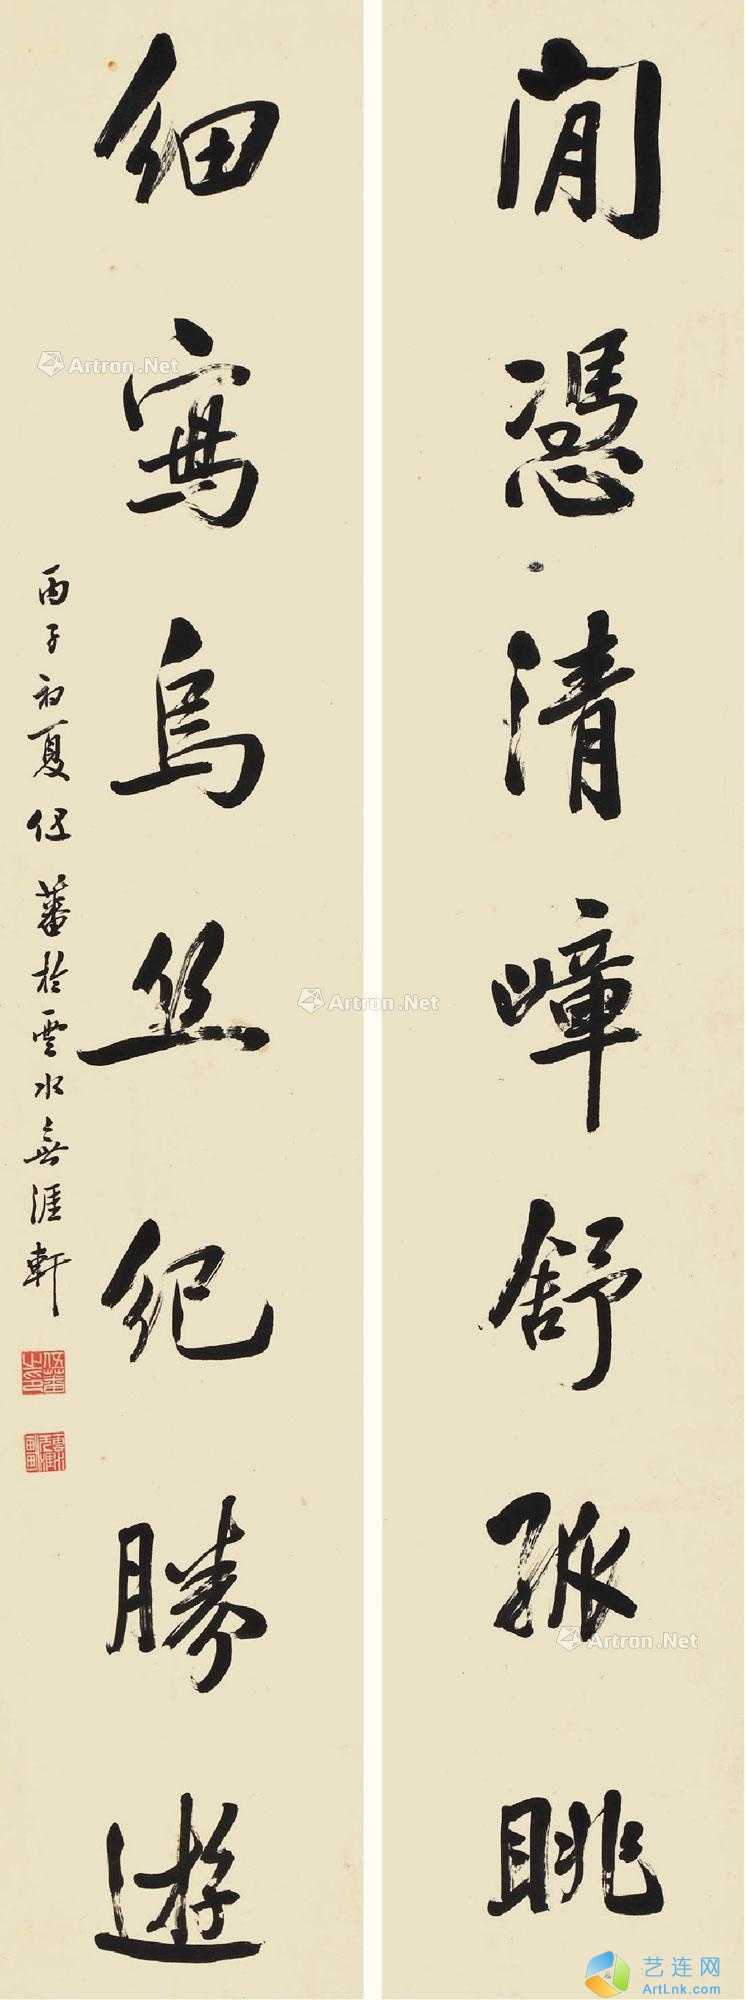 閒憑清嶂舒孤眺
細寫烏丝紀勝遊
丙子初夏伍蕃於雲水無涯軒
伍蕃之印
Artron.Net
Artron.Net
Artron.Net
艺连网
ArtLnk.com